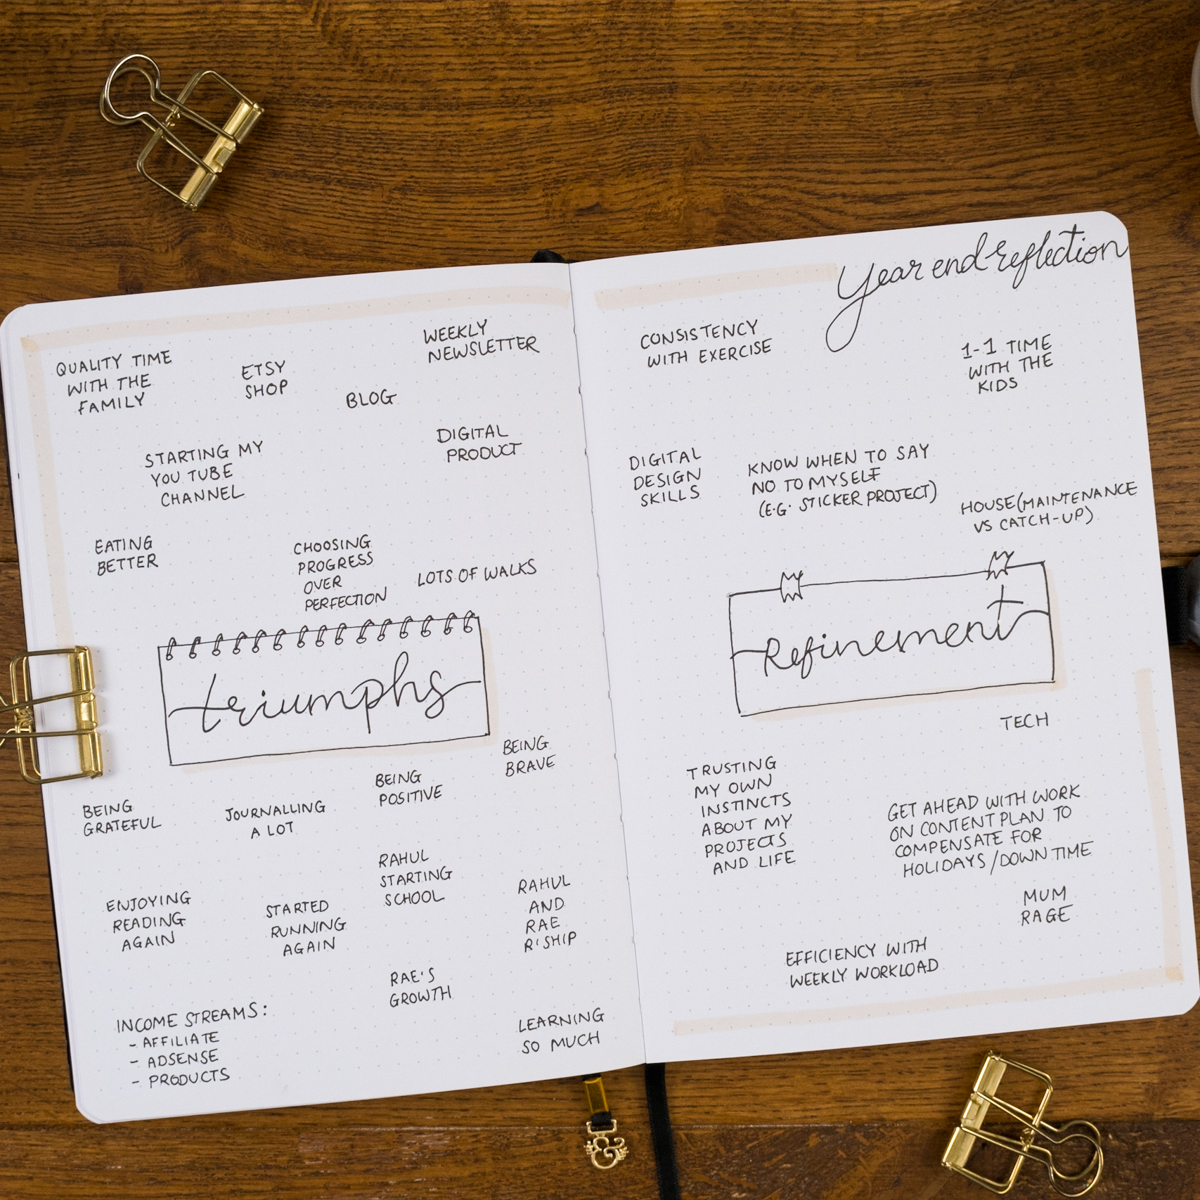 QUALITY TIME
WITH THE
FAMILY
ETSY
SHOP
BLOG
WEEKLY
NEWSLETTER
STARTING MY
YOU TUBE
CHANNEL
DIGITAL
PRODUCT
EATING
BETTER
CHOOSING
PROGRESS
OVER
PERFECTION
LOTS OF WALKS
triumphs
BEING
GRATEFUL
JOURNALLING
A LOT
BEING
POSITIVE
BEING
BRAVE
ENJOYING
READING
AGAIN
STARTED
RUNNING
AGAIN
RAHUL
STARTING
SCHOOL
RAHUL
AND
RAE
R'SHIP
RAE'S
GROWTH
INCOME STREAMS:
- AFFILIATE
- ADSENSE
- PRODUCTS
LEARNING
SO MUCH
Year end reflection
CONSISTENCY
WITH EXERCISE
1-1 TIME
WITH THE
KIDS
DIGITAL
DESIGN
SKILLS
KNOW WHEN TO SAY
NO TO MYSELF
(E.G. STICKER PROJECT)
HOUSE (MAINTENANCE
VS CATCH-UP)
Refinement
TECH
TRUSTING
MY OWN
INSTINCTS
ABOUT MY
PROJECTS
AND LIFE
GET AHEAD WITH WORK
ON CONTENT PLAN TO
COMPENSATE FOR
HOLIDAYS / DOWN TIME
MUM
RAGE
EFFICIENCY WITH
WEEKLY WORKLOAD
&